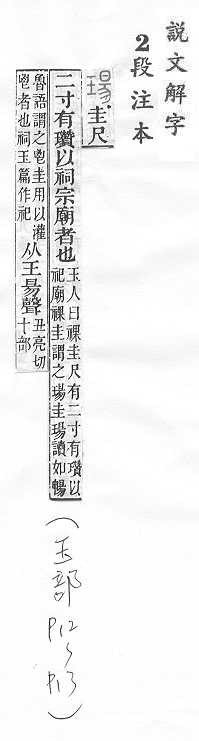 說文解字
2段注本
瑒.圭尺
二寸有瓚以祠宗廟者也
玉人曰祼圭尺有二寸有瓚以
祀廟祼圭謂之瑒圭瑒讀如暢
魯語謂之鬯圭用以灌
鬯者也祠玉篇作祀
从王昜聲
丑亮切
十部
(玉部P12~P13)